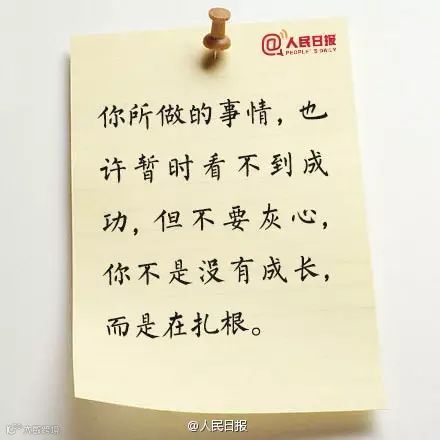 @人民日报
PEOPLE'S DAILY
你所做的事情，也
许暂时看不到成
功，但不要灰心，
你不是没有成长，
而是在扎根。
@人民日报